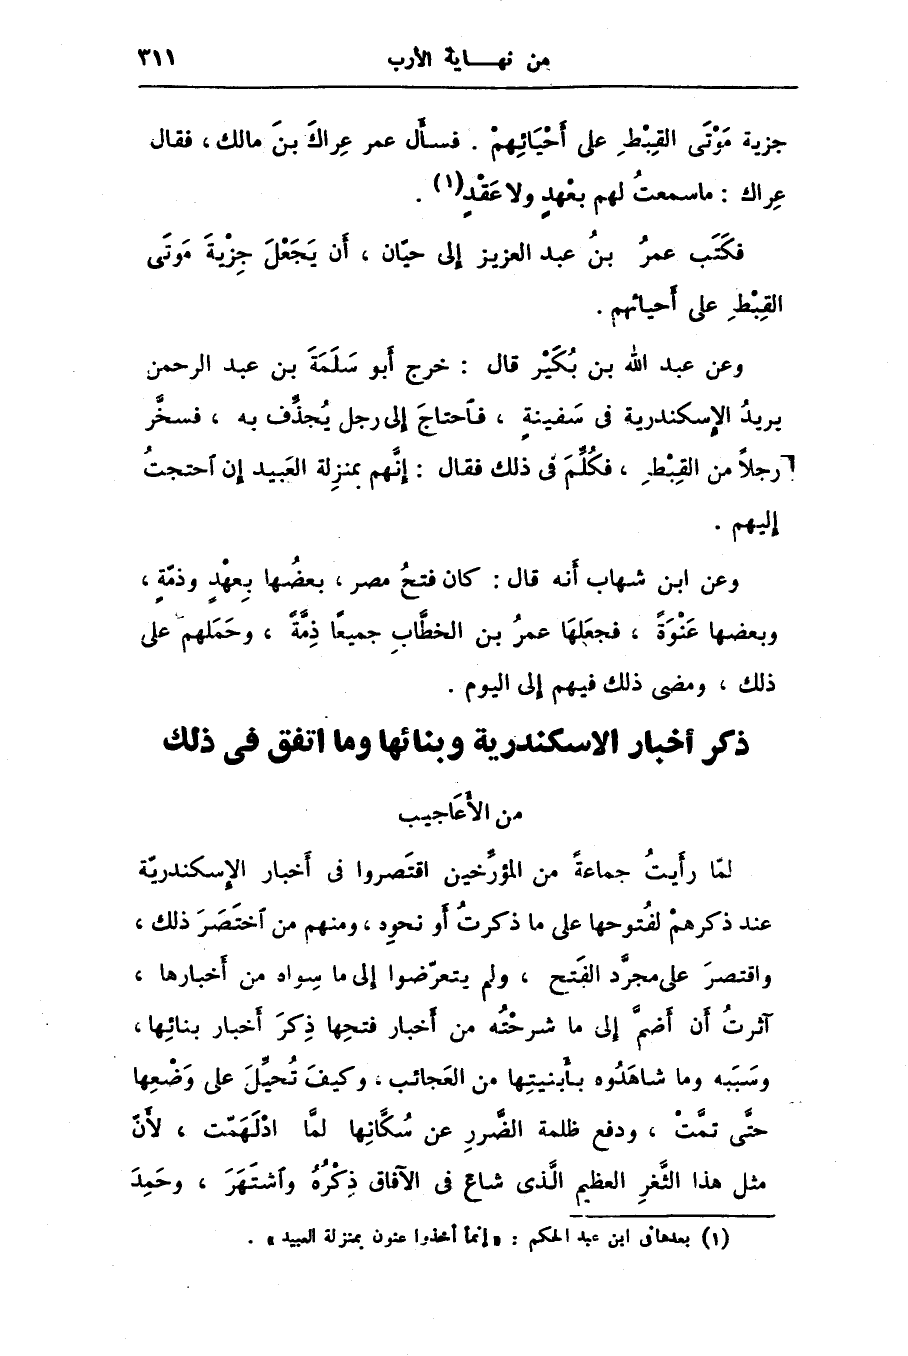 من نهـــاية الأرب ٣١١
جزية مَوْتَى القِبْطِ على أَحْيَائِهمْ . فسأَل عمر عِراكَ بنَ مالك ، فقال
عِراك : ماسمعتُ لهم بعْهدٍ ولا عَقْدٍ(١) .
فكَتَب عمرُ بنُ عبد العزيز إلى حيّان ، أَن يَجَعْلَ جِزْيةَ مَوتَى
القِبْطِ على أَحيائهم .
وعن عبد الله بن بُكَيْر قال : خرج أَبو سَلَمَةَ بن عبد الرحمن
يريدُ الإسكندرية فى سَفينةٍ ، فاَحتاجَ إلى رجل يُجذِّف به ، فسخَّر
رجلاً من القِبْطِ ، فكُلِّمَ فى ذلك فقال : إنَّهم بمنزِلة العَبيد إن اَحتجتُ
إليهم .
وعن ابن شهاب أَنه قال : كان فتحُ مصر ، بعضُها بِعهْدٍ وذمّةٍ ،
وبعضها عَنْوَةً ، فجعَلهَا عمرُ بن الخطَّابِ جميعًا ذِمَّةً ، وحَمَلهم على
ذلك ، ومضى ذلك فيهم إلى اليوم .
ذكر أخبار الاسكندرية وبنائها وما اتفق فى ذلك
من الأَعَاجيب
لمّا رأَيتُ جماعةً من المؤرِّخين اقتَصروا فى أَخبار الإسكندريّة
عند ذكرهمْ لفُتوحها على ما ذكرتُ أَو نحوِه ، ومنهم من اَختَصَرَ ذلك ،
واقتصرَ على مجرَّد الفَتح ، ولم يتعرّضوا إلى ما سِواه من أَخبارها ،
آثرتُ أَن أَضمَّ إلى ما شرحْتُه من أَخبار فتحِها ذِكرَ أَخبار بنائِها ،
وسَبَبه وما شاهَدُوه بأَبنيتِها من العَجائب ، وكيفَ تُحيِّلَ على وَضْعِها
حتَّى تمَّتْ ، ودفع ظلمة الضَّررِ عن سُكَّانِها لمَّا ادْلَهَمّت ، لأَنّ
مثل هذا الثَّغرِ العظيمِ الَّذى شاعَ فى الآفاق ذِكْرُهُ واَشتَهَرَ ، وحَمِدَ
(١) بعدهافى ابن عبد الحكم : « إنما أخذوا عنون بمنزلة العبيد » .